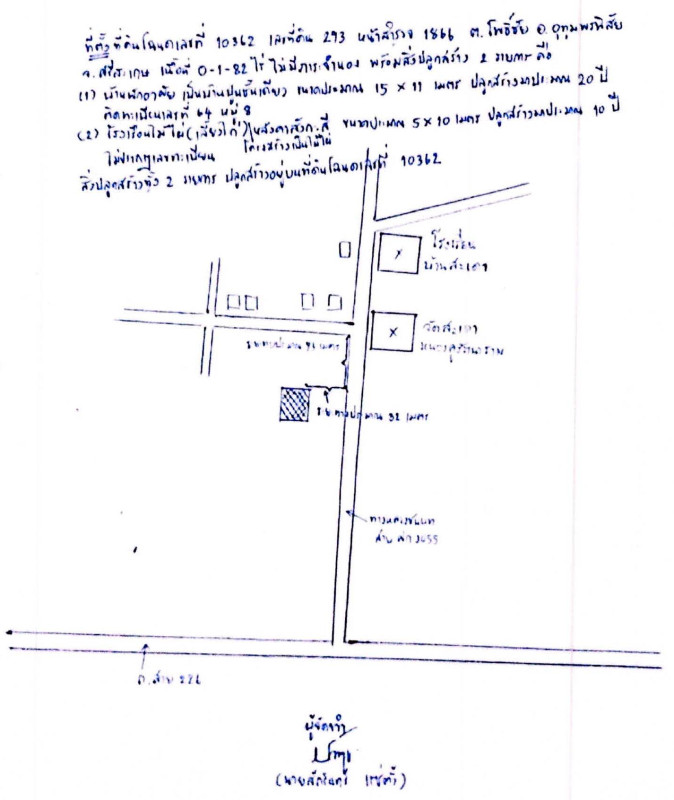 ที่ตั้งที่ดินโฉนดเลขที่ 10362 เลขที่ดิน 293 หน้าสำรวจ 1866 ต.โพธิ์ชัย อ.อุทุมพรพิสัย
จ.ศรีสะเกษ เนื้อที่ 0-1-82 ไร่ ไม่มีภาระจำนอง พร้อมสิ่งปลูกสร้าง 2 รายการ คือ
(1) บ้านพักอาศัย เป็นบ้านปูนชั้นเดียว ขนาดประมาณ 15 x 11 เมตร ปลูกสร้างมาประมาณ 20 ปี
ติดทะเบียนเลขที่ 64 หมู่ 8
(2) โรงเรือนไม้ไผ่ (เลี้ยงไก่) หลังคาสังกะสี ขนาดประมาณ 5 x 10 เมตร ปลูกสร้างมาประมาณ 10 ปี
โครงสร้างเป็นไม้ไผ่
ไม่ปรากฏเลขทะเบียน
สิ่งปลูกสร้างทั้ง 2 รายการ ปลูกสร้างอยู่บนที่ดินโฉนดเลขที่ 10362
โรงเรียน
บ้านสะเดา
วัดสะเดา
ระยะทางประมาณ เมตร
ระยะทางประมาณ 32 เมตร
ทางหลวงชนบท
สาย ศก 3055
ถ.สาย 226
ผู้จัดทำ
(นาย